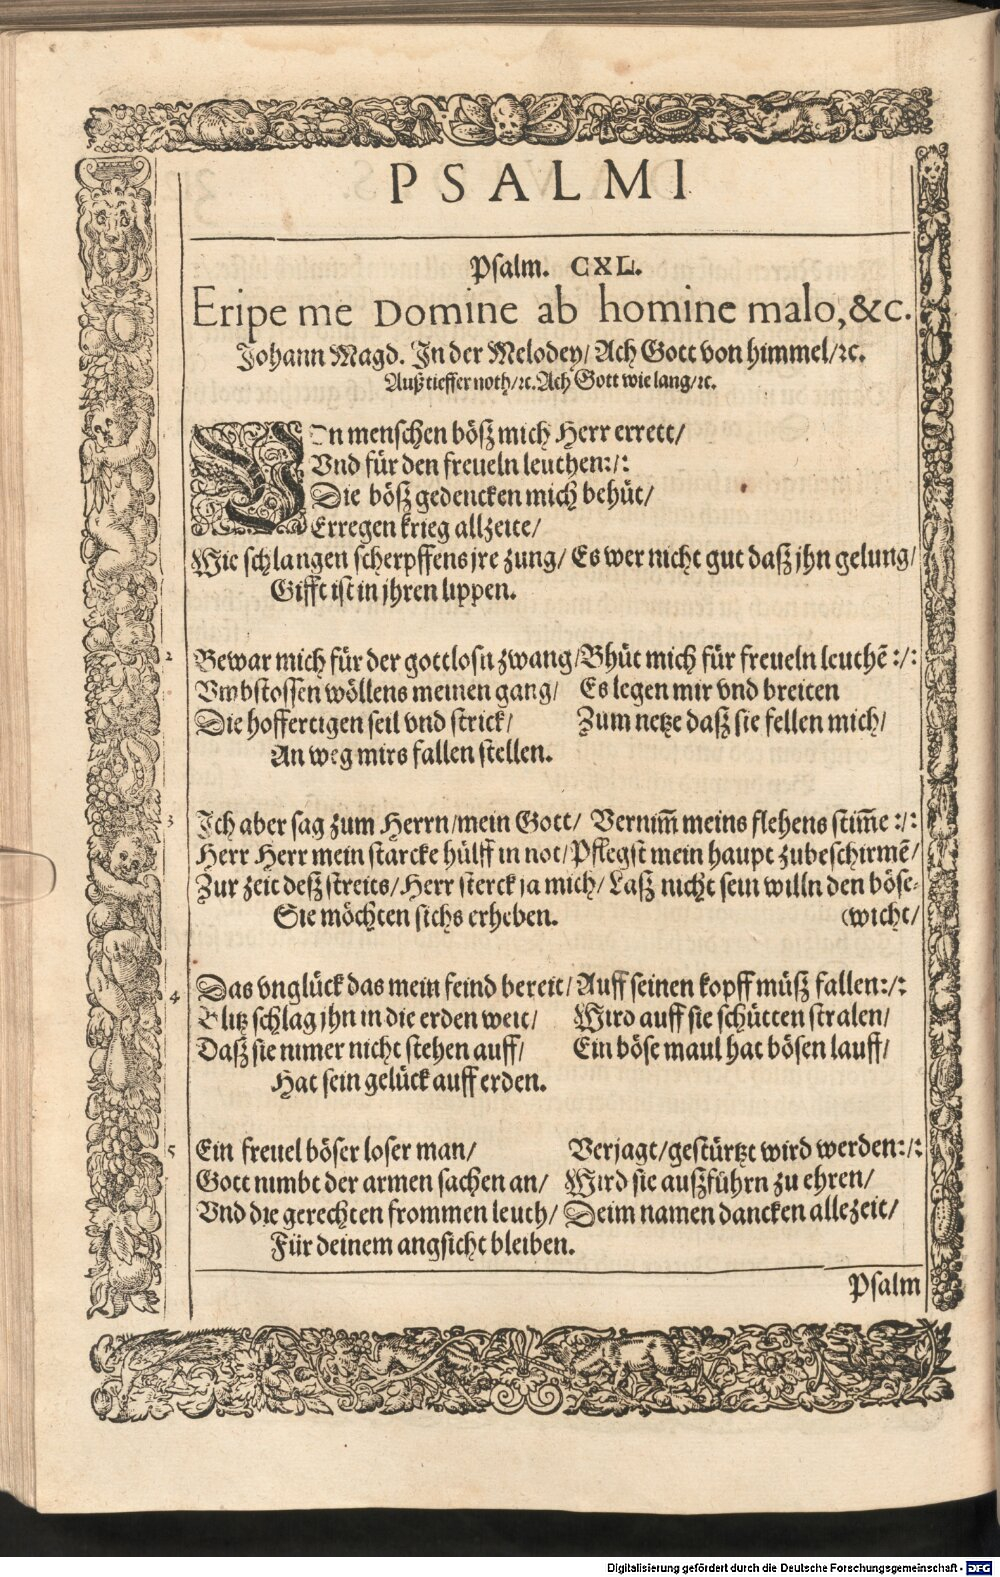 PSALMI
Psalm. CXL.
Eripe me Domine ab homine malo, &c.
Johann Magd. In der Melodey/ Ach Gott von himmel/ꝛc.
Auß tieffer noth/ꝛc. Ach Gott wie lang/ꝛc.
VOn menschen böß mich Herr errett/
Vnd für den freueln leuthen:/:
Die böß gedencken mich behüt/
Erregen krieg allzeite/
Wie schlangen scherpffens jre zung/ Es wer nicht gut daß jhn gelung/
Gifft ist in jhren lippen.
2 Bewar mich für der gottlosn zwang/ Bhüt mich für freueln leuthē :/:
Vmbstossen wöllens meinen gang/ Es legen mir vnd breiten
Die hoffertigen seil vnd strick/ Zum netze daß sie fellen mich/
An weg mirs fallen stellen.
3 Ich aber sag zum Herrn/mein Gott/ Vernim̄ meins flehens stim̄e :/:
Herr Herr mein starcke hülff in not/ Pflegst mein haupt zubeschirmē/
Zur zeit deß streits/ Herr sterck ja mich/ Laß nicht sein willn den böse-
Sie möchten sichs erheben. (wicht/
4 Das vnglück das mein feind bereit/ Auff seinen kopff müß fallen:/:
Blitz schlag jhn in die erden weit/ Wird auff sie schütten stralen/
Daß sie nimer nicht stehen auff/ Ein böse maul hat bösen lauff/
Hat sein gelück auff erden.
5 Ein freuel böser loser man/ Verjagt/gestürtzt wird werden:/:
Gott nimbt der armen sachen an/ Wird sie außführn zu ehren/
Vnd die gerechten frommen leuth/ Deim namen dancken allezeit/
Für deinem angsicht bleiben.
Psalm
Digitalisierung gefördert durch die Deutsche Forschungsgemeinschaft - DFG